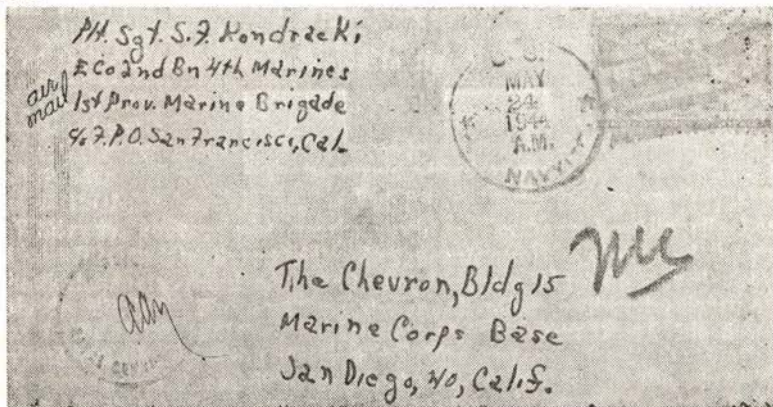 Plt. Sgt. S.J. Kondracki
E Co 2nd Bn 4th Marines
air mail
1st Prov. Marine Brigade
c/o F.P.O. San Francisco, Cal.
U. S.
MAY
24
1944
A.M.
NAVY
The Chevron, Bldg 15
Marine Corps Base
San Diego, 40, Calif.